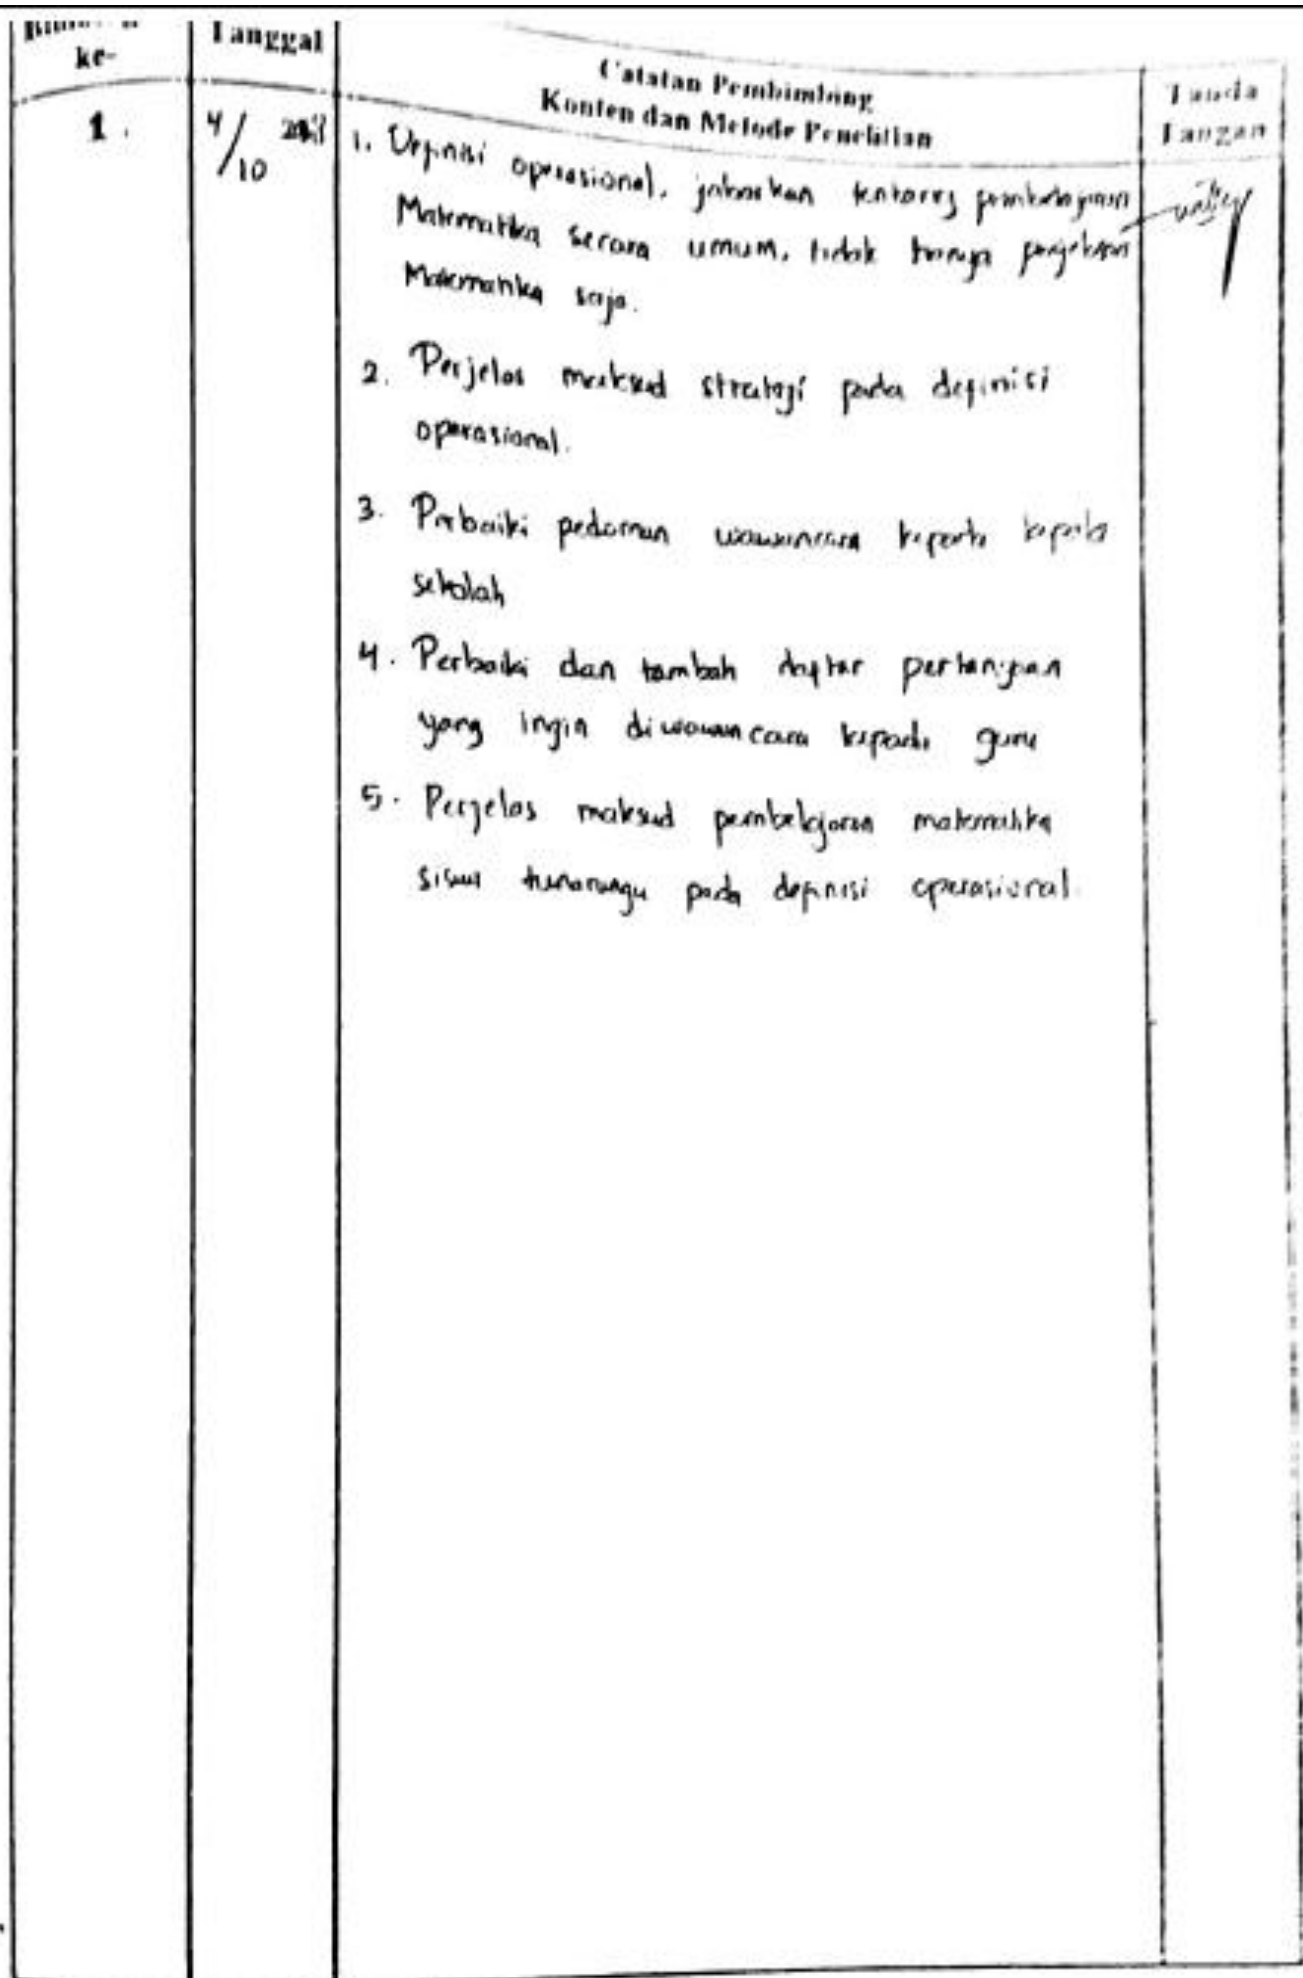 ke-
Tanggal
Catatan Pembimbing
Konten dan Metode Penelitian
Tanda
Tangan
1.
4/10
1. Definisi operasional, jabarkan tentang pembelajaran
Matematika secara umum, tidak hanya
Matematika saja.
2. Perjelas maksud strategi pada definisi
operasional.
3. Perbaiki pedoman wawancara kepada kepala
sekolah
4. Perbaiki dan tambah daftar pertanyaan
yang ingin diwawancara kepada guru
5. Perjelas maksud pembelajaran matematika
siswa tunarungu pada definisi operasional.